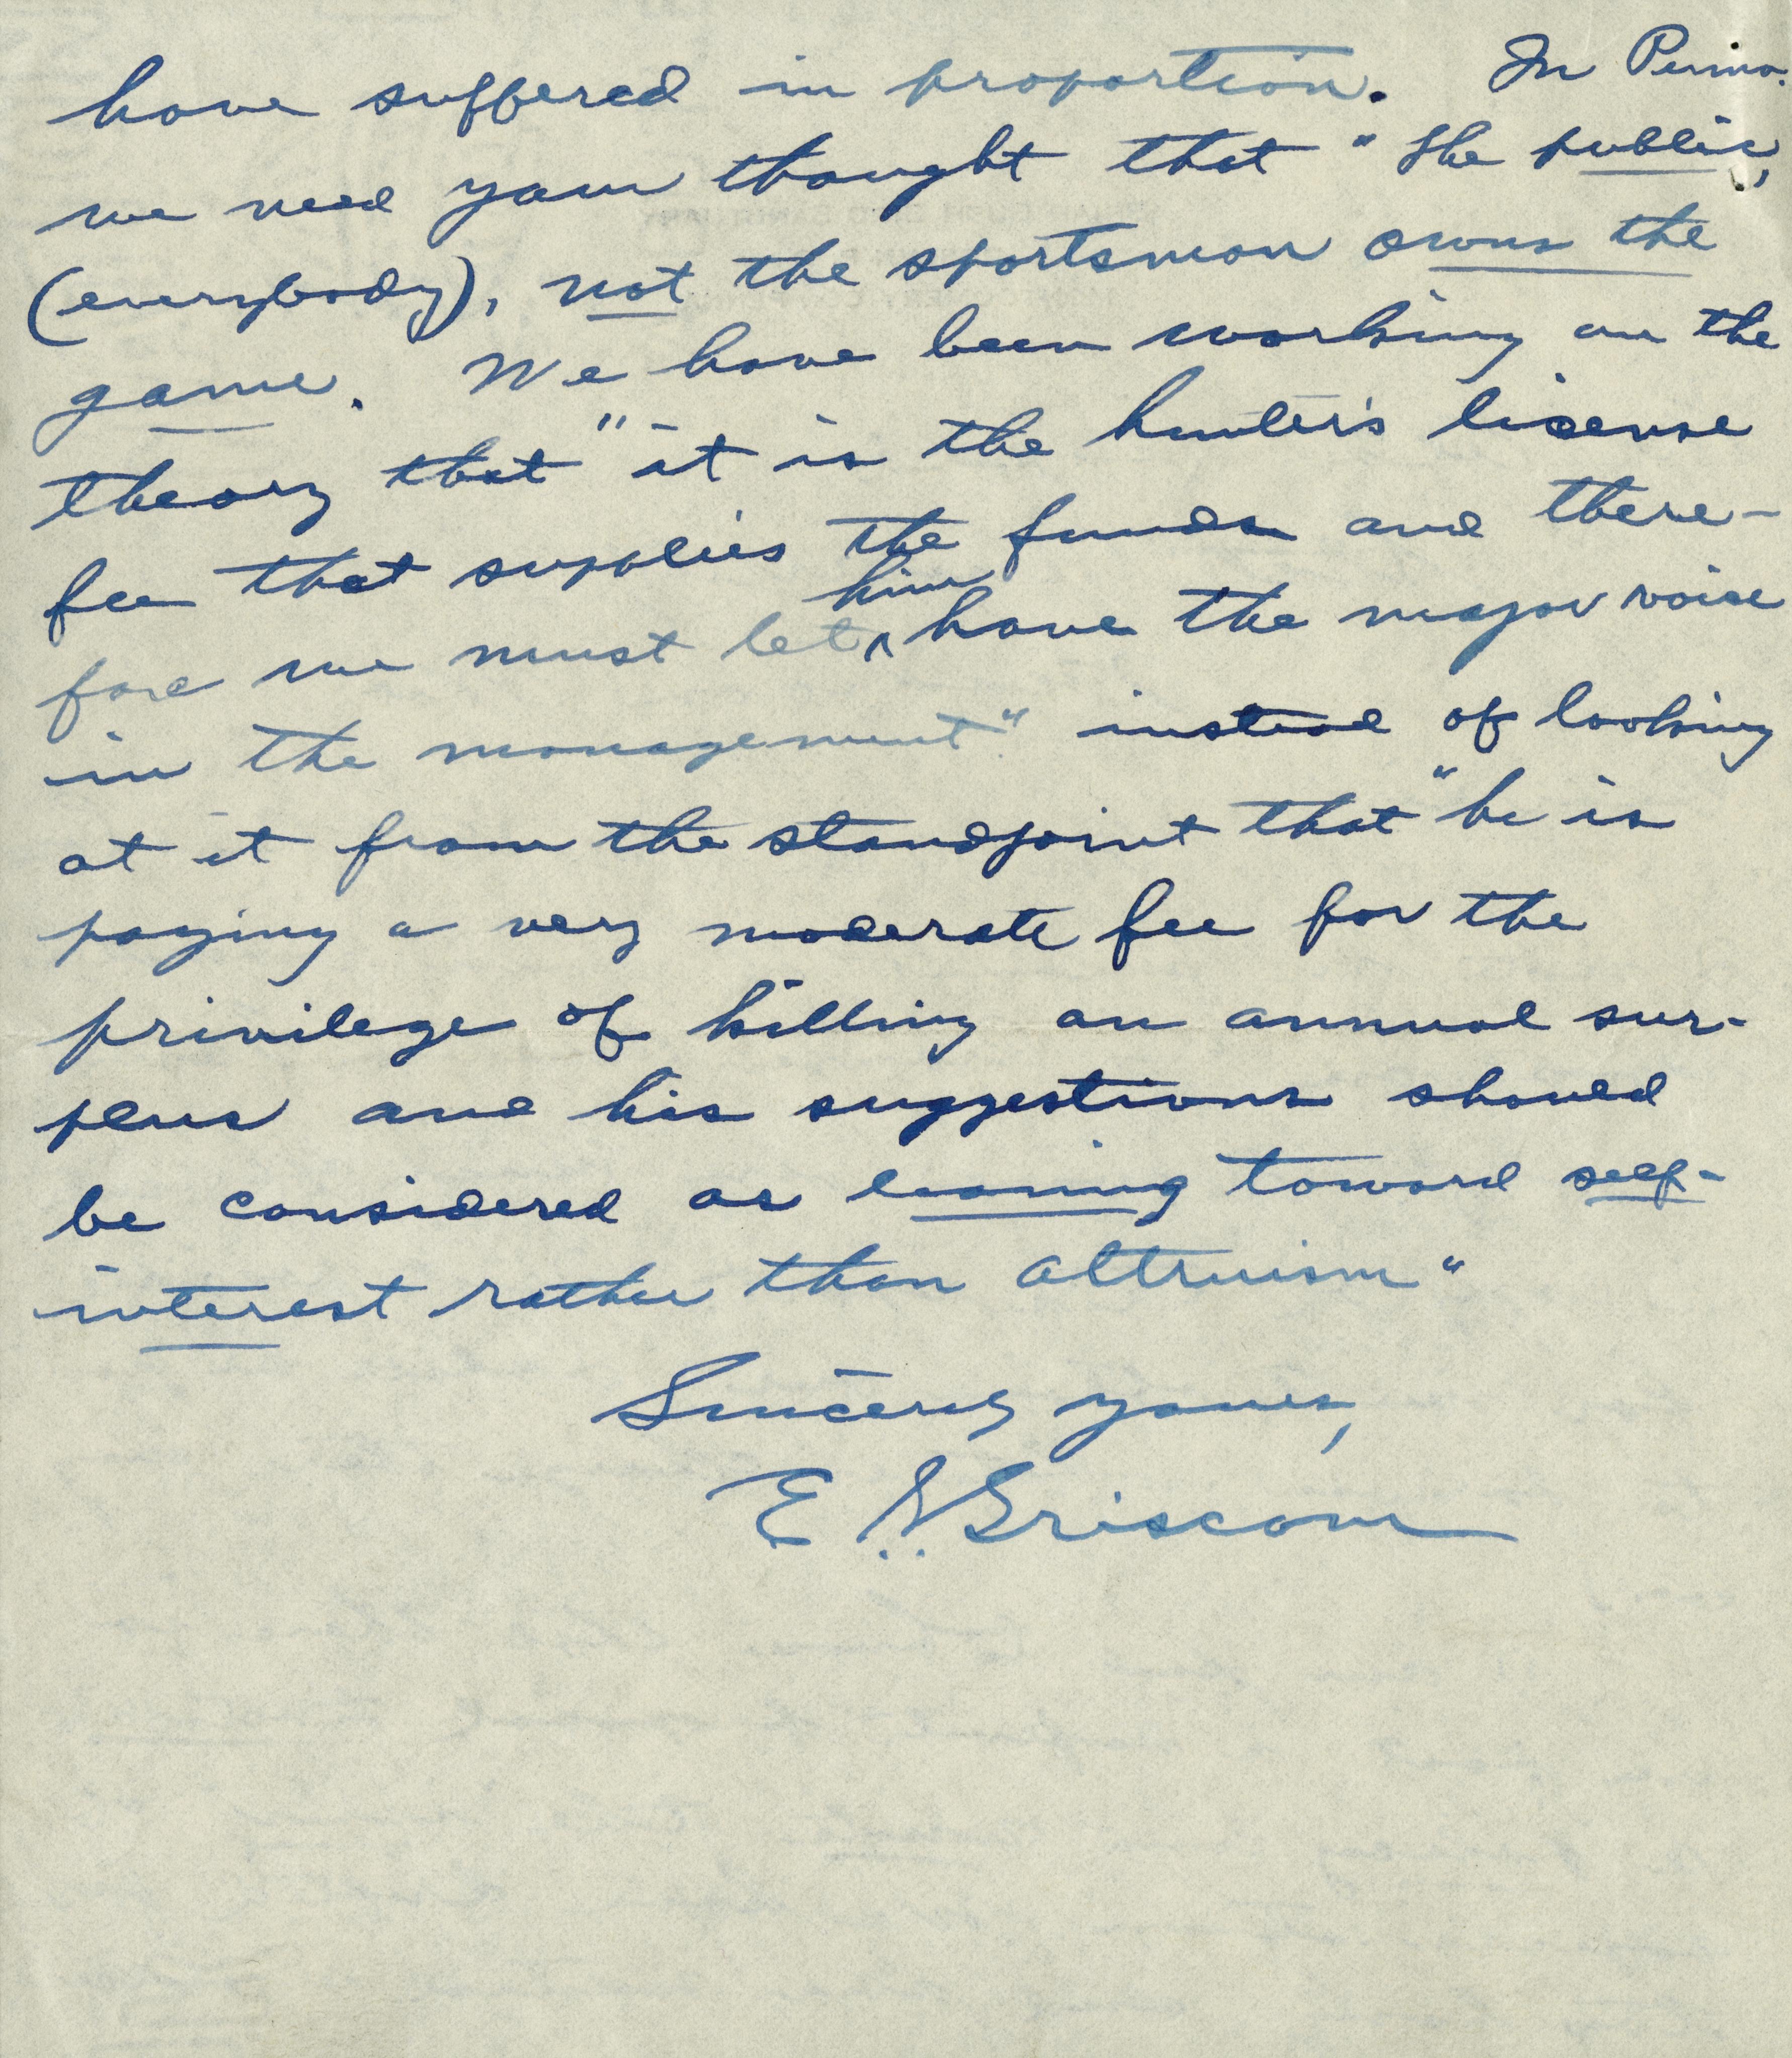 have suffered in proportion. In Penna.
we need your thought that "the public,
(everybody), not the sportsman owns the
game. We have been working on the
theory that "it is the hunter's license
fee that supplies the funds and there-
him
fore we must let ^ have the major voice
in the management" instead of looking
at it from the standpoint that "he is
paying a very moderate fee for the
privilege of killing an annual sur-
plus and his suggestions should
be considered as leaning toward self-
interest rather than altruism"
Sincerely yours,
E. N. Griscom